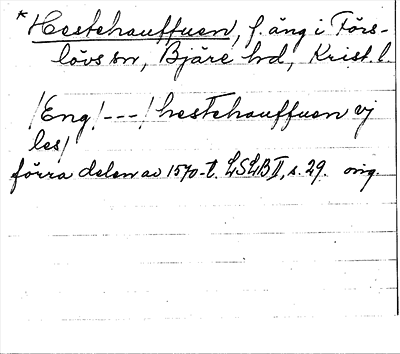 *Hestehauffuen, f. äng i Förs-
lövs sn, Bjäre hd, Krist. l.
/Eng/---/ hestehauffuen vj
les/
förra delen av 1570-t. LSLB II, s. 29. orig.